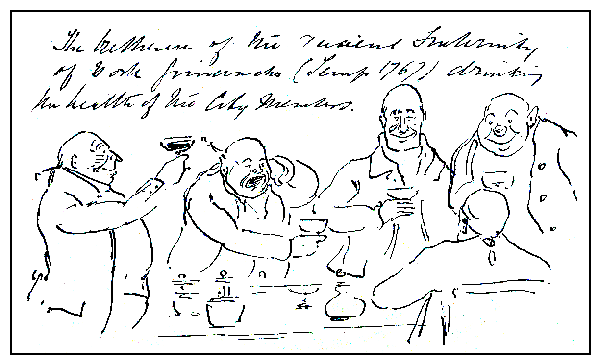 The brethren of the Ancient Fraternity
of York (Temp 1767) drinking
the health of the City Members.